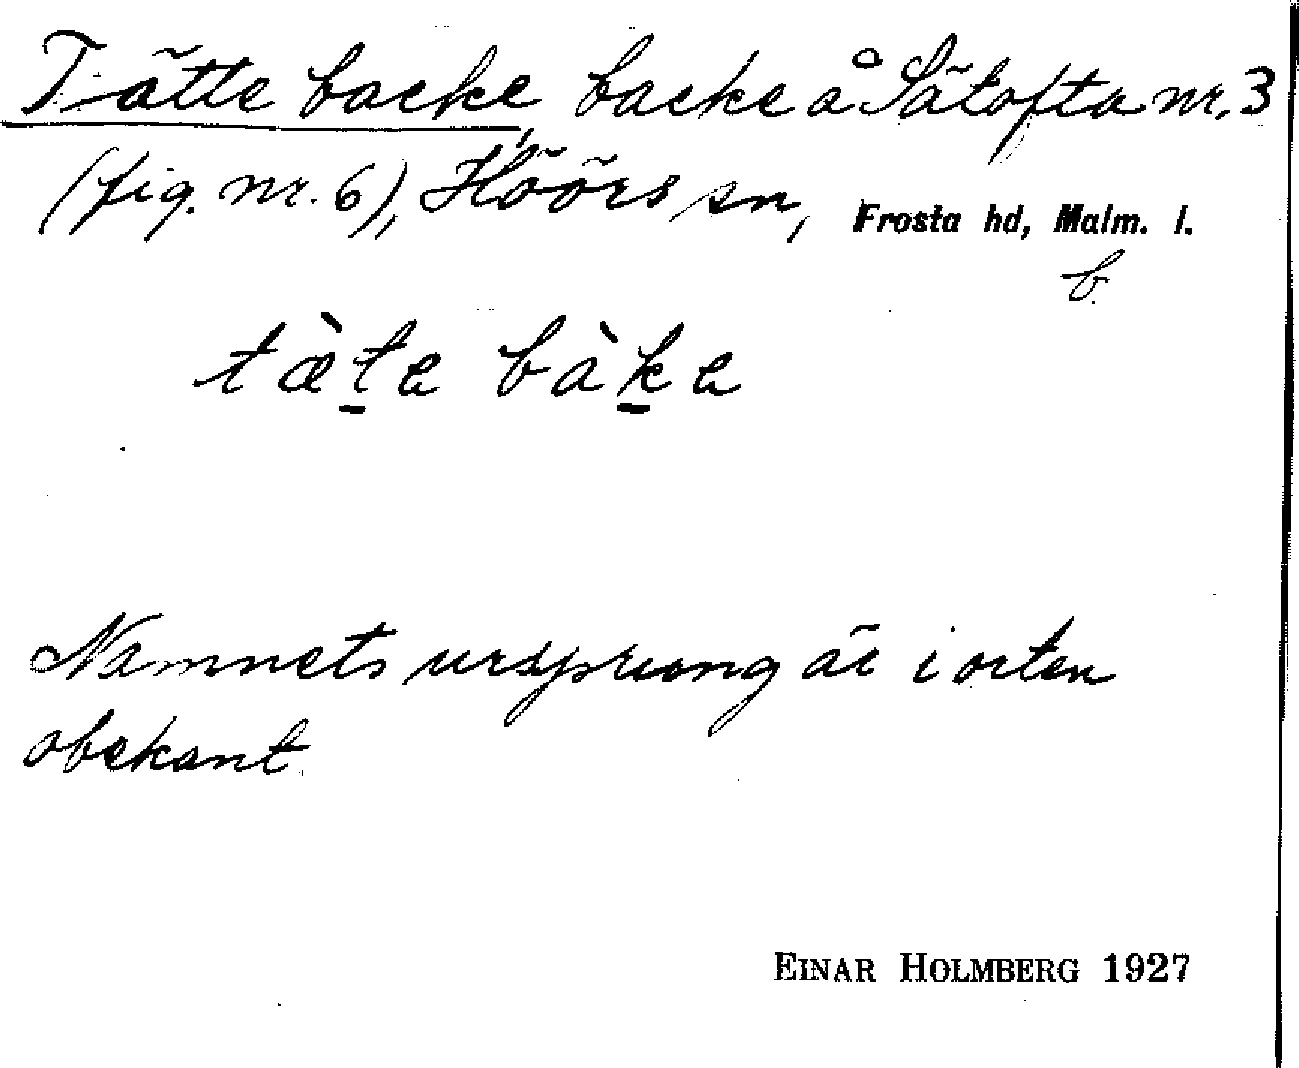 Tätte backe, backe å Sätofta nr. 3
(fig. nr. 6), Höörs sn, Frosta hd, Malm. l.
b.
tæ̀t̲e bàk̲e
Namnets ursprung är i orten
obekant.
EINAR HOLMBERG 1927